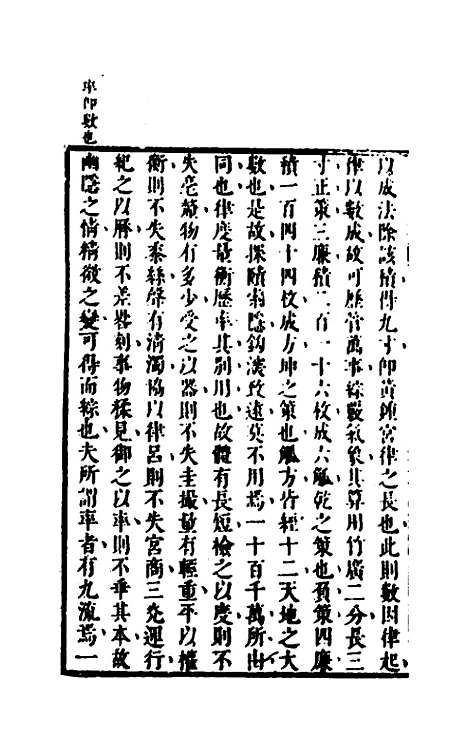 以成法除該積得九寸卽黃鍾宮律之長也此則數因律起
律以數成故可歷管萬事綜覈氣象其算用竹廣二分長三
寸正策三廉積二百一十六枚成六觚乾之策也負策四廉
積一百四十四枚成方坤之策也觚方皆經十二天地之大
數也是故探賾索隱鈎深致遠莫不用焉一十百千萬所由
同也律度量衡歷率其別用也故體有長短檢之以度則不
失毫釐物有多少受之以器則不失圭撮量有輕重平以權
衡則不失黍絲聲有淸濁協以律呂則不失宮商三光運行
紀之以曆則不差晷刻事物糅見御之以率則不乖其本故
幽隱之情精微之變可得而綜也夫所謂率者有九流焉一
率卽數也